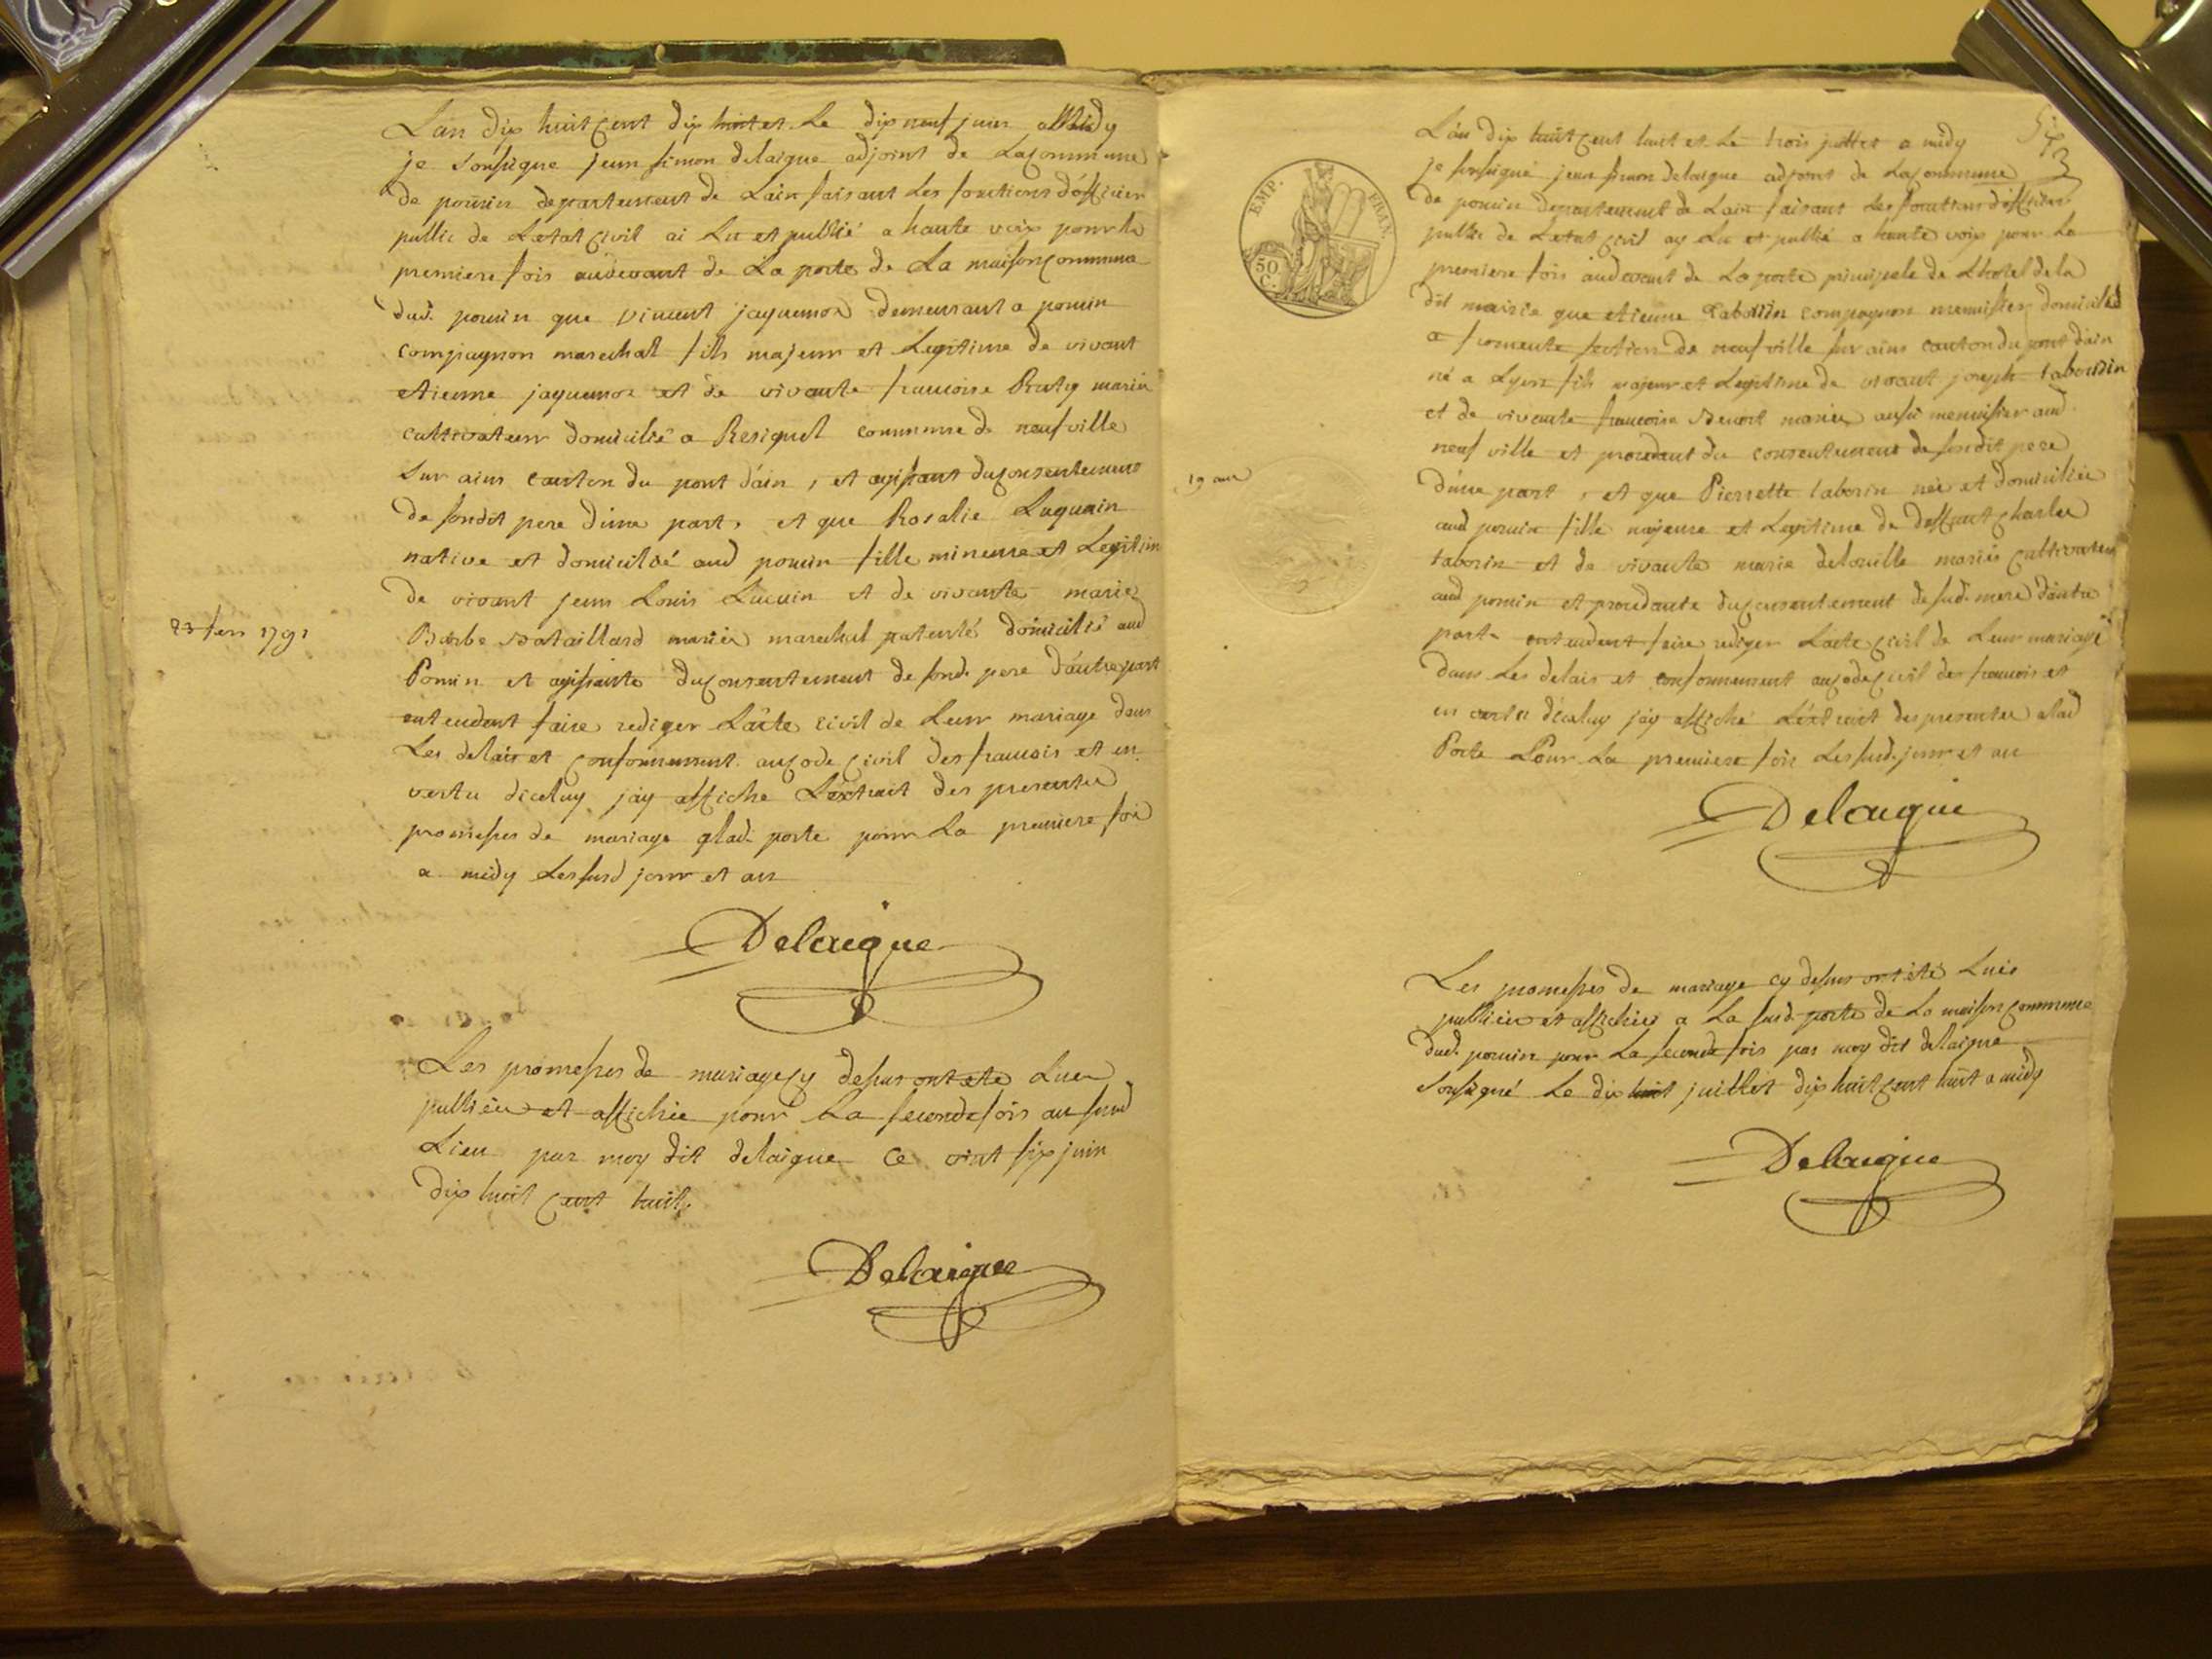 Lan dix huit cent dix huit et Le dix neuf juin a Midy
je sousigne jean simon delaigue adjoint de La commune
de poncin departement de Lain faisant Les fonctions d'officier
public de Letat civil ai Lu et publié a haute voix pour la
premiere fois audevant de La porte de La maison commune
dud. poncin que vincent jaquemoz demeurant a poncin
compagnon marechal fils majeur et Legitime de vivant
etienne jaquemoz et de vivante francoise Praty mariés
cultivateur domicilié a Resiguel commune de neufville
sur ains canton du pont d'ain, et agissant du consentement
de sondit pere d'une part, et que Rosalie Luquain
native et domicilié aud poncin fille mineure et Legitime
de vivant jean Louis Lucuin et de vivante marie
23 fev 1791
Barbe Bataillard mariés marechal patenté domicilié aud
Poncin et agissante du consentement de sond. pere d'autre part
entendent faire rediger L'acte civil de Leur mariage dans
Les delais et conformement au code civil des francois et en
vertu diceluy jay affiché L'extrait des presentes
promesses de mariage a lad. porte pour La premiere fois
a midy Les susd jour et an
Delaigue
Les promesses de mariage cy dessus ont ete Lues
publiées et affichée pour La seconde fois au susd
Lieu par moy dit delaigue ce vint six juin
dix huit cent huit.
Delaigue
six
3
EMP. FRAN.
50
C.
L'an dix huit cent huit et Le trois juillet a midy
je sousigné jean simon delaigue adjoint de La commune
de poncin departement de Lain faisant Les fonctions d'officier
public de Letat civil ay Lu et publié a haute voix pour La
premiere fois audevant de La porte principale de L'hotel de la
dit mairie que etienne tabourin compagnon menuisier domicilié
a fromente section de neufville sur ains canton du pont d'ain
né a Lyon fils majeur et Legitime de vivant joseph tabourin
et de vivante francoise Benoit mariés aussi menuisier aud.
neuf ville et procedant du consentement de sondit pere
19 avr
d'une part, et que Pierrette taborin née et domiciliée
aud poncin fille majeure et Legitime de deffunt charles
taborin et de vivante marie delouille mariés cultivateur
aud poncin et procedante du consentement de sad. mere d'autre
part entendent faire rediger L'acte civil de Leur mariage
dans Les delais et conformement au code civil des francois et
en vertu d'iceluy jay affiché L'extrait des presentes a lad
Porte Pour La premiere fois Les susd. jour et an
Delaigue
Les promesses de mariage cy dessus ont été Lues
publiées et affichées a La susd. porte de La maison commune
dud. poncin pour La seconde fois par moy dit delaigue
sousigné Le dix huit juillet dix huit cent huit a midy
Delaigue